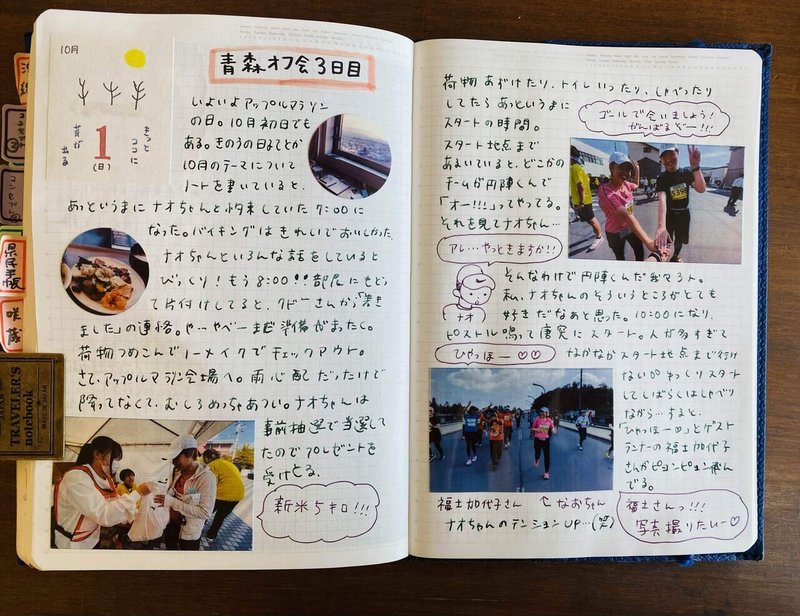 10月
1
(日)
まっと
ココに
芽が
出る
青森オフ会3日目
いよいよアップルマラソン
の日。10月初日でも
ある。きのうの日記とか
10月のテーマについて
ノートを書いていると、
あっというまにナオちゃんと約束していた7:00に
なった。バイキングはきれいでおいしかった。
ナオちゃんといろんな話をしていると
びっくり!もう8:00!!部屋にもどっ
て片付けしてると、
さんから「着き
ました」の連絡。や…やべーまだ準備がまったく。
荷物つめこんでノーメイクでチェックアウト。
さて、アップルマラソン会場へ。雨心配だったけど
降ってなくて、むしろめっちゃあつい。ナオちゃんは
事前抽選で当選して
たのでプレゼントを
受けとる。
新米5キロ!!!
TRAVELER'S
notebook
MADE IN JAPAN
県民手帳
荷物あずけたり、トイレいったり、しゃべったり
してたらあっというまに
スタートの時間。
ゴールで会いましょう!
がんばるぞー!!!
スタート地点まで
あるいていると、どこかの
チームが円陣くんで
「オー!!!」ってやってる。
それを見てナオちゃん…
アレ…やっときますか!!
ナオ
そんなわけで円陣くんだ我々2人。
私、ナオちゃんのそういうところがとても
好きだなあと思った。10:00になり、
ピストル鳴って唐突にスタート。人が多すぎて
ひゃっほー♡♡
なかなかスタート地点まで行け
ない
ゆっくりスタート
してしばらくはしゃべり
ながら…すると、
「ひゃっほー
」とゲスト
ランナーの福士加代子
さんがピョンピョン飛ん
でる。
福士加代子さん ↑なおちゃん
ナオちゃんのテンションUP…(笑)
福士さんっ!!!
写真撮りたいー♡